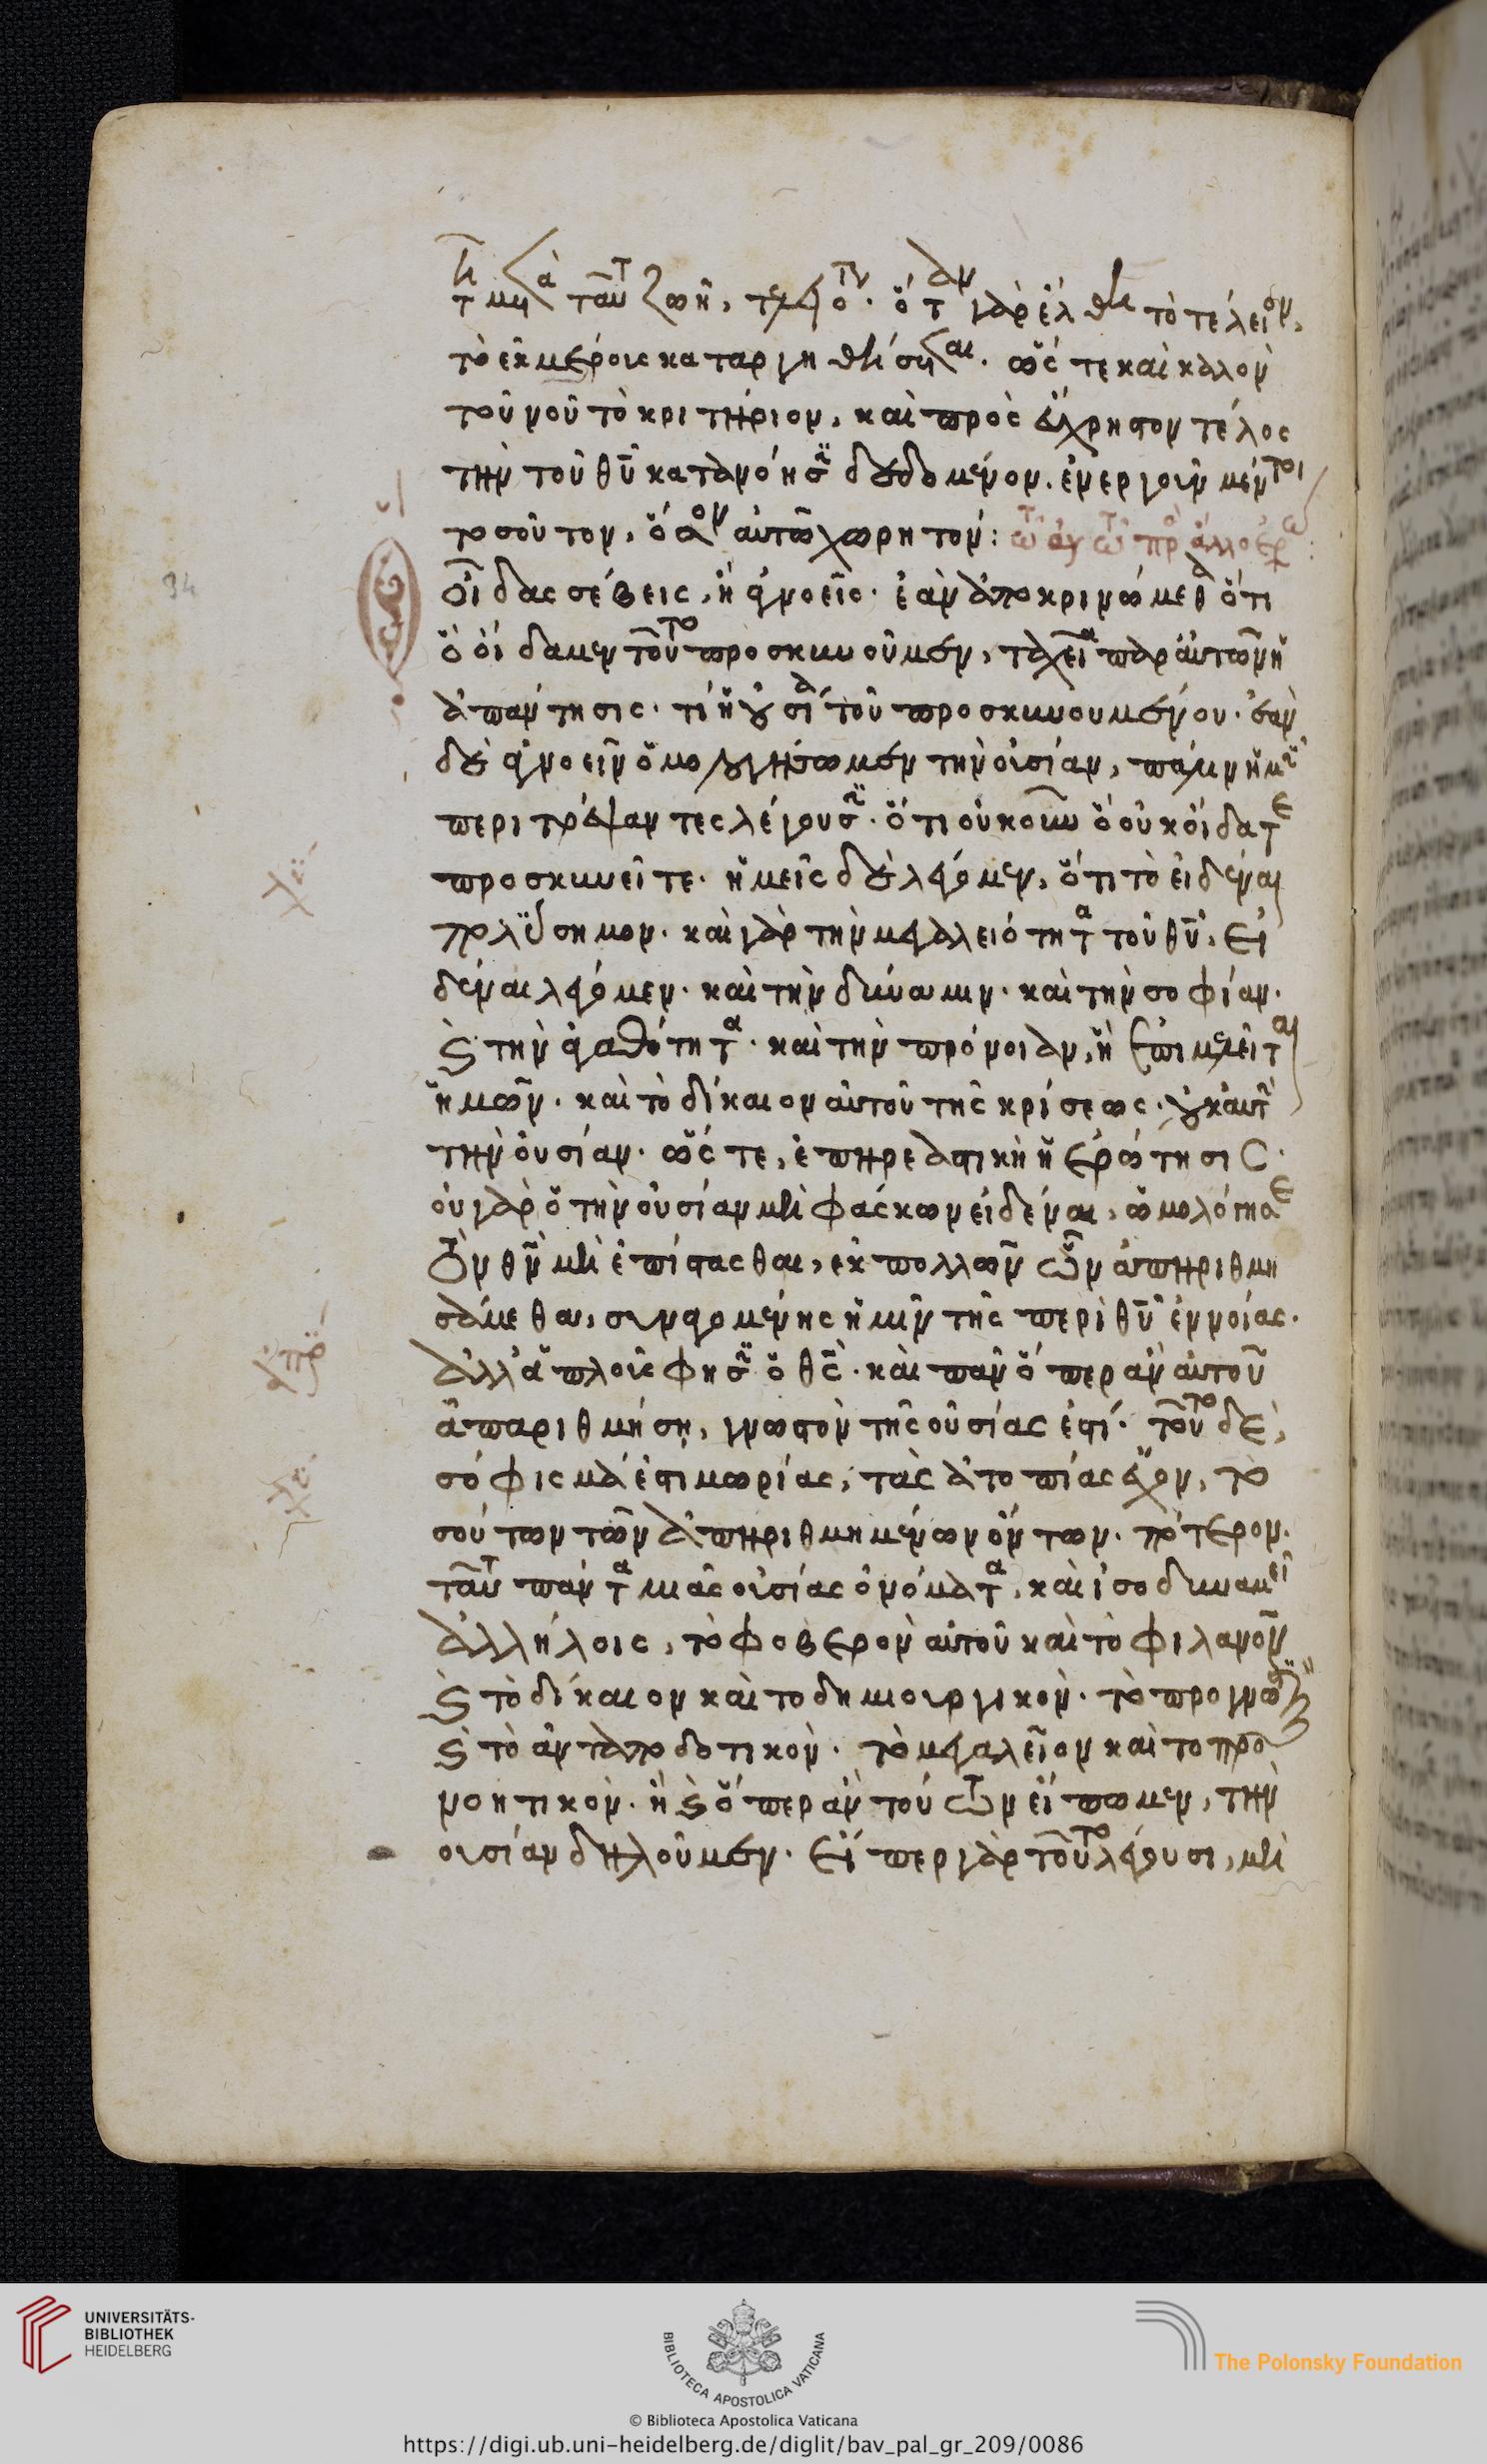 τῆ μετὰ ταῦτα ζωῆ, ὅταν γὰρ ἔλθη τὸ τέλειον,
τὸ ἐκ μέρους καταργηθήσεται. ὥς τε καὶ καλὸν
τοῦ νοῦ τὸ κριτήριον, καὶ πρὸς εὔχρηστον τέλος
τὴν τοῦ θῦ κατανόησιν δεδομένον. ἐνεργοῦν μέντοι
τοσοῦτον, ὅσον αὐτῶ χωρητόν: τῶ αὐτῶ πρὸς ἄλλο ἐρώ
Οἶδας σέβεις, ἢ ἀγνοεῖς. ἐὰν ἀποκρινώμεθα ὅτι
ὃ οἴδαμεν τοῦτο προσκυνοῦμεν, ταχεῖα παρ αὐτῶν ἡ
ἀπάντησις. τίς ἡ οὐσία τοῦ προσκυνουμένου. ἐὰν
δὲ ἀγνοεῖν ὁμολογήσωμεν τὴν οὐσίαν, πάλιν ἡμῖν
περιτρέψαντες λέγουσιν. ὅτι οὐκοῦν ὃ οὐκ οἴδατε
προσκυνεῖτε. ἡμεῖς δὲ λέγομεν, ὅτι τὸ εἰδέναι
πολύσημον. καὶ γὰρ τὴν μεγαλειότητα τοῦ θῦ, εἰ
δέναι λέγομεν. καὶ τὴν δύναμιν. καὶ τὴν σοφίαν.
καὶ τὴν ἀγαθότητα. καὶ τὴν πρόνοιαν, ἣ ἐπιμελεῖται
ἡμῶν. καὶ τὸ δίκαιον αὐτοῦ τῆς κρίσεως. οὐκ αὐτὴν
τὴν οὐσίαν. ὥς τε, ἐπηρεαστικὴ ἡ ἐρώτησις.
οὐ γὰρ ὁ τὴν οὐσίαν μὴ φάσκων εἰδέναι, ὡμολόγησε
τὸν θν μὴ ἐπίστασθαι, ἐκ πολλῶν ὧν ἀπηριθμη
σάμεθα, συναγομένης ἡμῖν τῆς περὶ θῦ ἐννοίας.
ἀλλ ἁπλοῦς φησὶν ὁ θς. καὶ πᾶν ὅπερ ἂν αὐτοῦ
ἀπαριθμήση, γνωστὸν τῆς οὐσίας ἐστί. τοῦτο δὲ,
σόφισμά ἐστι μωρίας, τὰς ἀτοπίας ἔχον, το
σούτων τῶν ἀπηριθμημένων ὄντων. πότερον.
ταῦτα πάντα μιᾶς οὐσίας ὀνόματα, καὶ ἰσοδυναμεῖ
ἀλλήλοις, τὸ φοβερὸν αὐτοῦ καὶ τὸ φιλανον
καὶ τὸ δίκαιον καὶ το δημιουργικὸν. τὸ προγνωστικὸν
καὶ τὸ ἀνταποδοτικὸν. τὸ μεγαλεῖον καὶ το προ
νοητικὸν. ἢ καὶ ὅπερ ἂν τούτων εἴπωμεν, τὴν
οὐσίαν δηλοῦμεν. εἴπερ γὰρ τοῦτο λέγουσι, μὴ
94
UNIVERSITÄTS-
BIBLIOTHEK
HEIDELBERG
BIBLIOTECA APOSTOLICA VATICANA
The Polonsky Foundation
© Biblioteca Apostolica Vaticana
https://digi.ub.uni-heidelberg.de/diglit/bav_pal_gr_209/0086